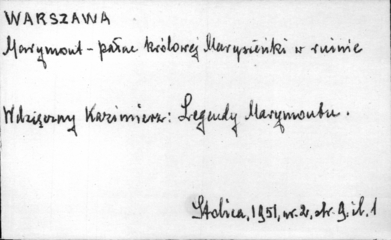 WARSZAWA
Marymont - pałac królowej Marysieńki w ruinie
Wdzięczny Kazimierz: Legendy Marymontu.
Stolica, 1951, nr. 2, str. 9. il. 1